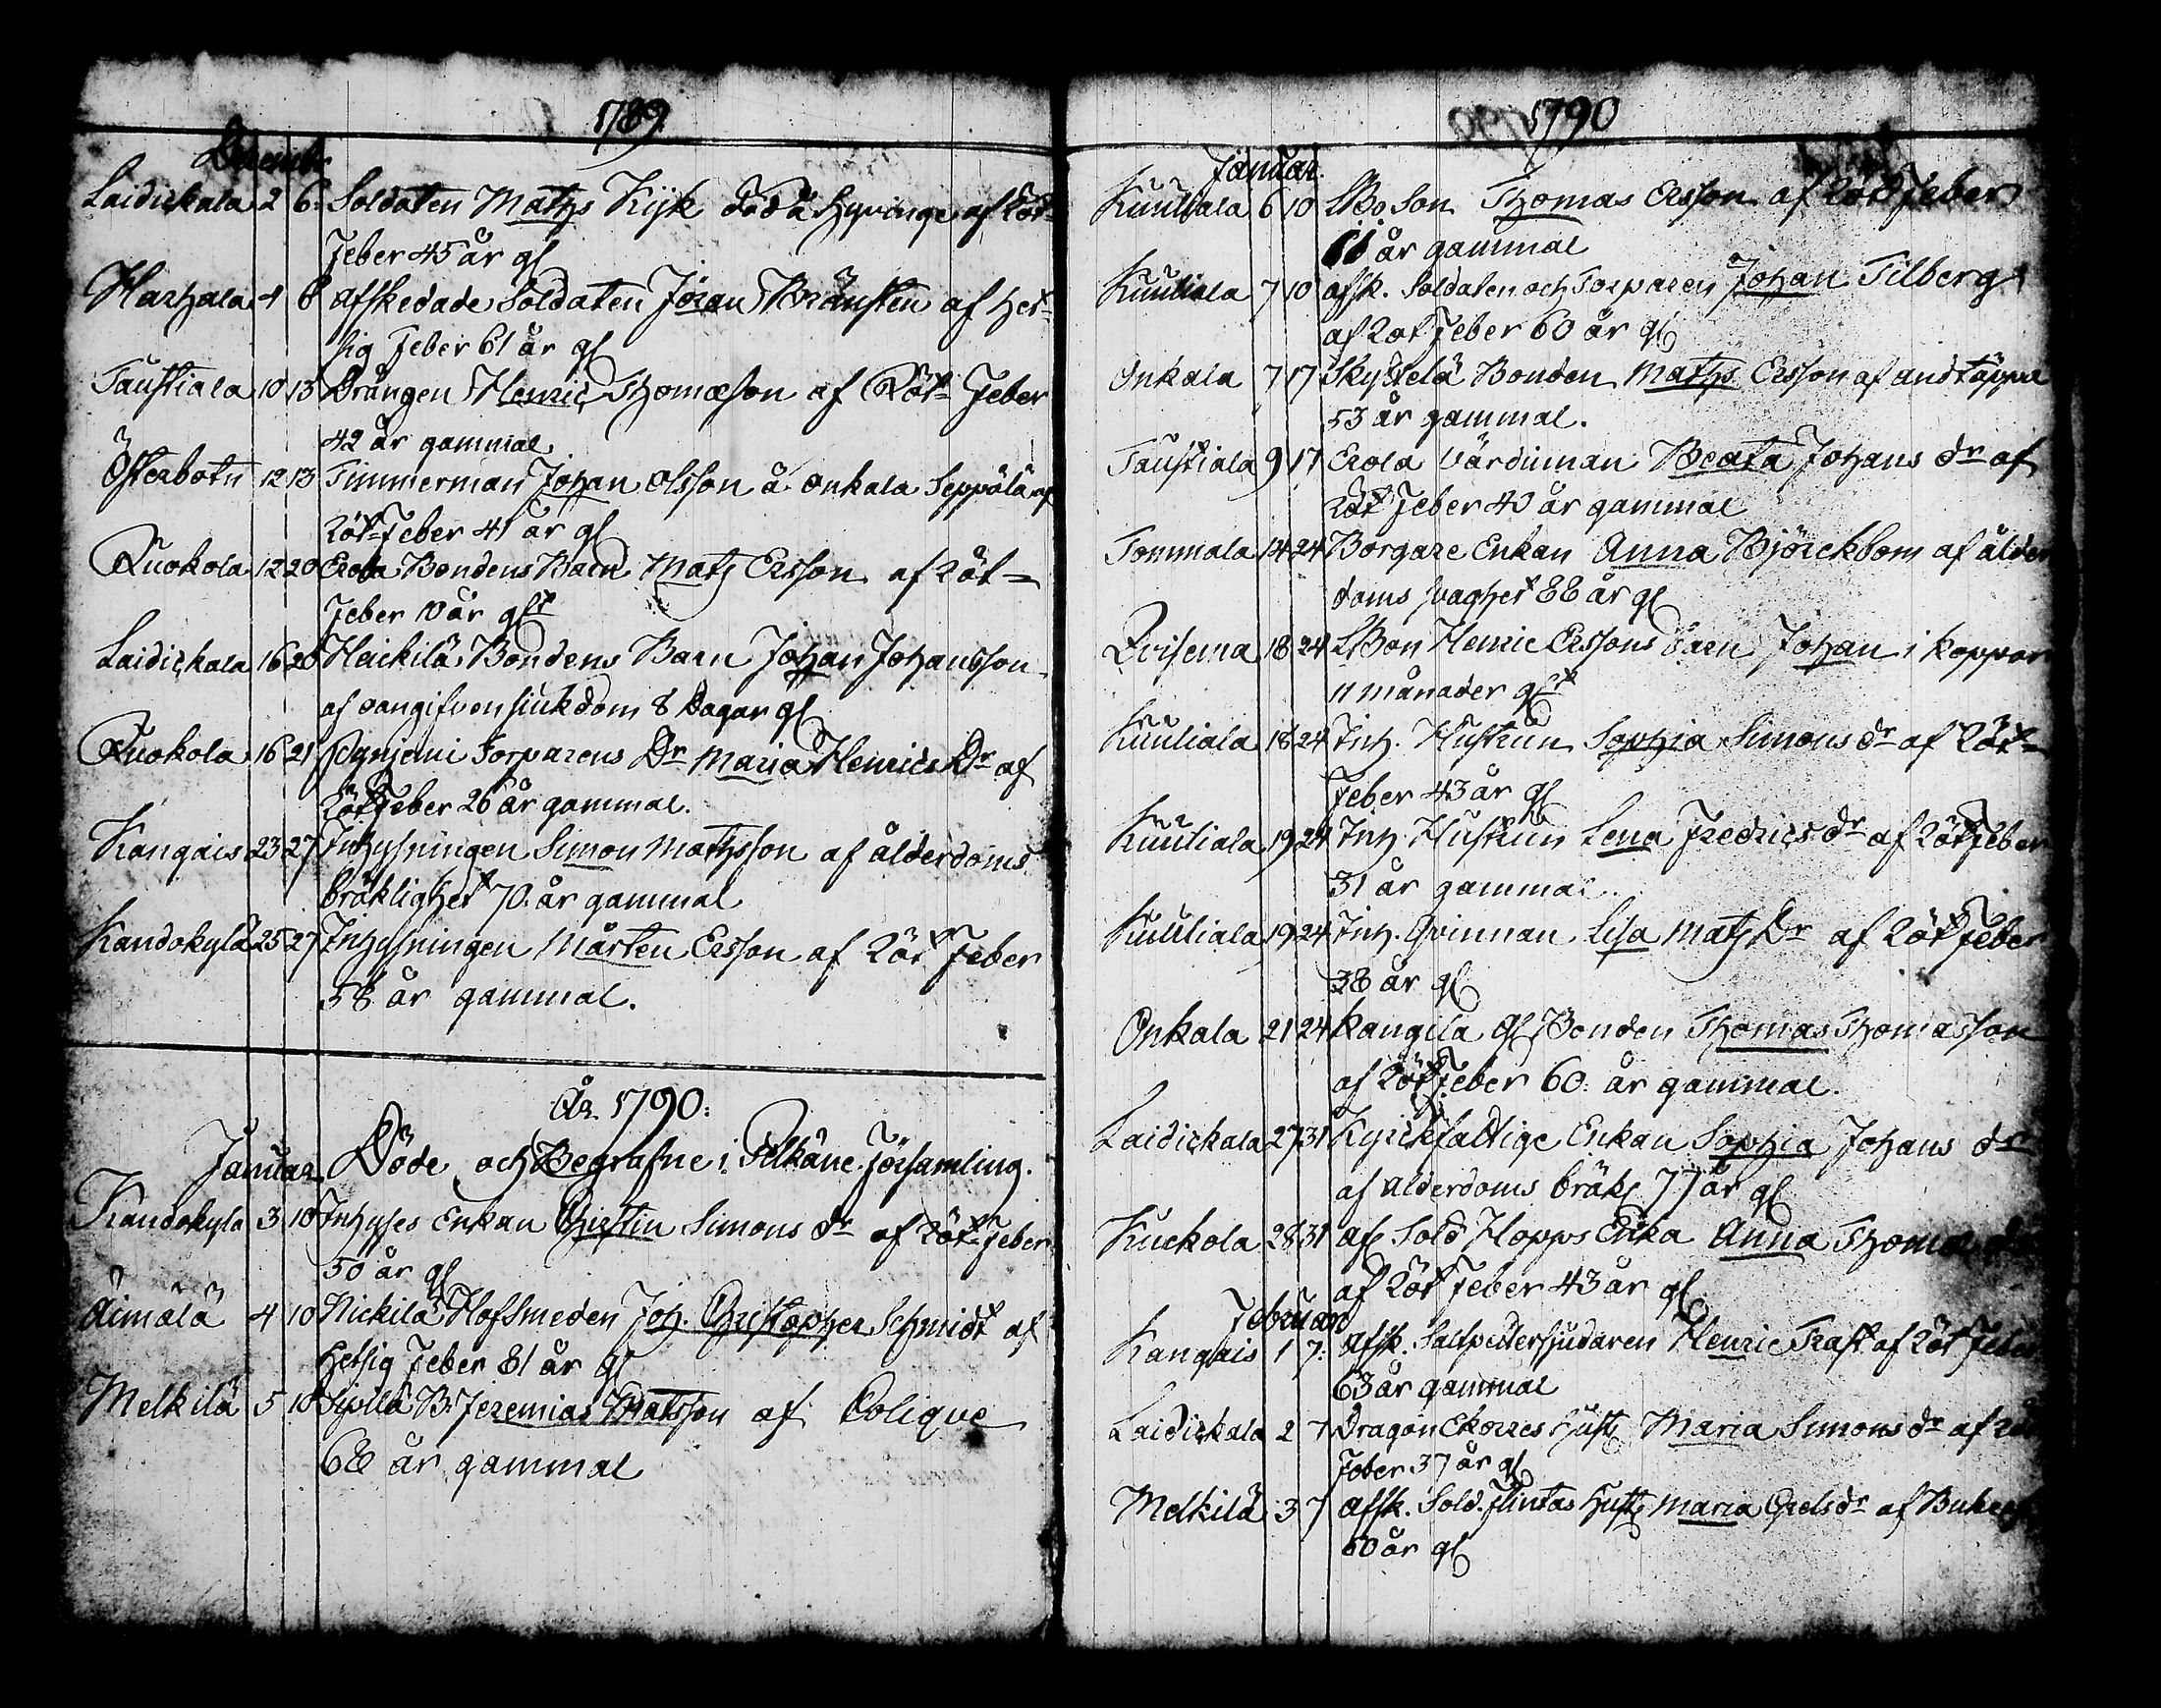 1789
Decembr
Laidickala 2 6 Soldaten Maths Kijk död å Hyvinge af Röt-
Feber 45 år gl
Harhala 4 6 afskedade Soldaten Jöran Bränsten af Het-
sig Feber 61 år gl
Taustiala 10 13 Drängen Henric Thomæson af Röt- Feber
42 år gammal
Österbotn 12 13 Timmerman Johan Olsson å Onkala Seppälä af
Röt-Feber 41 år gl
Ruokola 12 20 Erola Bondens Barn Mats Ersson af Röt-
Feber 10 år glt
Laidickala 16 20 Heickilä Bondens Barn Johan Johansson
af oangifven siukdom 8 Dagar gl
Ruokola 16 21 Torparens Dr Maria Henrics Dr af
Röt Feber 26 år gammal.
Kangais 23 27 Inhysningen Simon Mathsson af ålderdoms
bräklighet 70. år gammal
Kandokylä 25 27 Inhysningen Mårten Ersson af Röt Feber
58 år gammal.
År 1790:
Januar Döde och Begrafne i Pelkäne Församling.
Kandokyla 3 10 Inhyses Enkan Christin Simons dr af Röt-Feber
50 år gl
Äimälä 4 10 Nickilä Hofsmeden Joh. Christopher Schmidt af
Hetsig Feber 81 år gl
Melkilä 5 10 B. Jeremias Matsson af Colique
68 år gammal
1790
Januar.
Kuuliala 6 10 LBo Son Thomas Ersson af Röt Feber
61 år gammal
Kuuliala 7 10 afsk. Soldaten och Torparen Johan Tilberg
af Röt Feber 60 år gl
Onkala 7 17 Skyttelä Bonden Maths Ersson af andtäppa
53 år gammal.
Taustiala 9 17 Erola Värdinnan Beata Johans dr af
Röt Feber 40 år gammal
Tommala 14 24 Borgare Enkan Anna Björckbom af ålder
doms svaghet 88 år gl
Qvisema 18 24 LBon Henric Erssons barn Johan i koppor
11 månader glt
Kuuliala 18 24 Inh. Hustrun Sophia Simons dr af Röt-
Feber 43 år gl
Kuuliala 19 24 Inh. Hustrun Lena Fredrics dr af Röt Feber
31 år gammal.
Kuuliala 19 24 Inh. Qvinnan Lisa Mats Dr af Röt Feber
38 år gl
Onkala 21 24 Kangila Gl Bonden Thomas Thomasson
af Röt Feber 60. år gammal.
Laidickala 27 31 Kyrckfattige Enkan Sophia Johans dr
af ålderdoms bräkl 77 år gl
Kuckola 28 31 afs Sold Hopps Enka Anna Thomæ
af Röt Feber 43 år gl
Februar
Kangais 1 7. afsk. Saltpettersjudaren Henric Trast af Röt Feber
63 år gammal
Laidickala 2 7 Dragon Ekorres Hust Maria Simons dr af Röt
Feber 37 år gl
Melkilä 3 7 afsk. Sold. Flintas Hust Maria Grels dr af
60 år gl